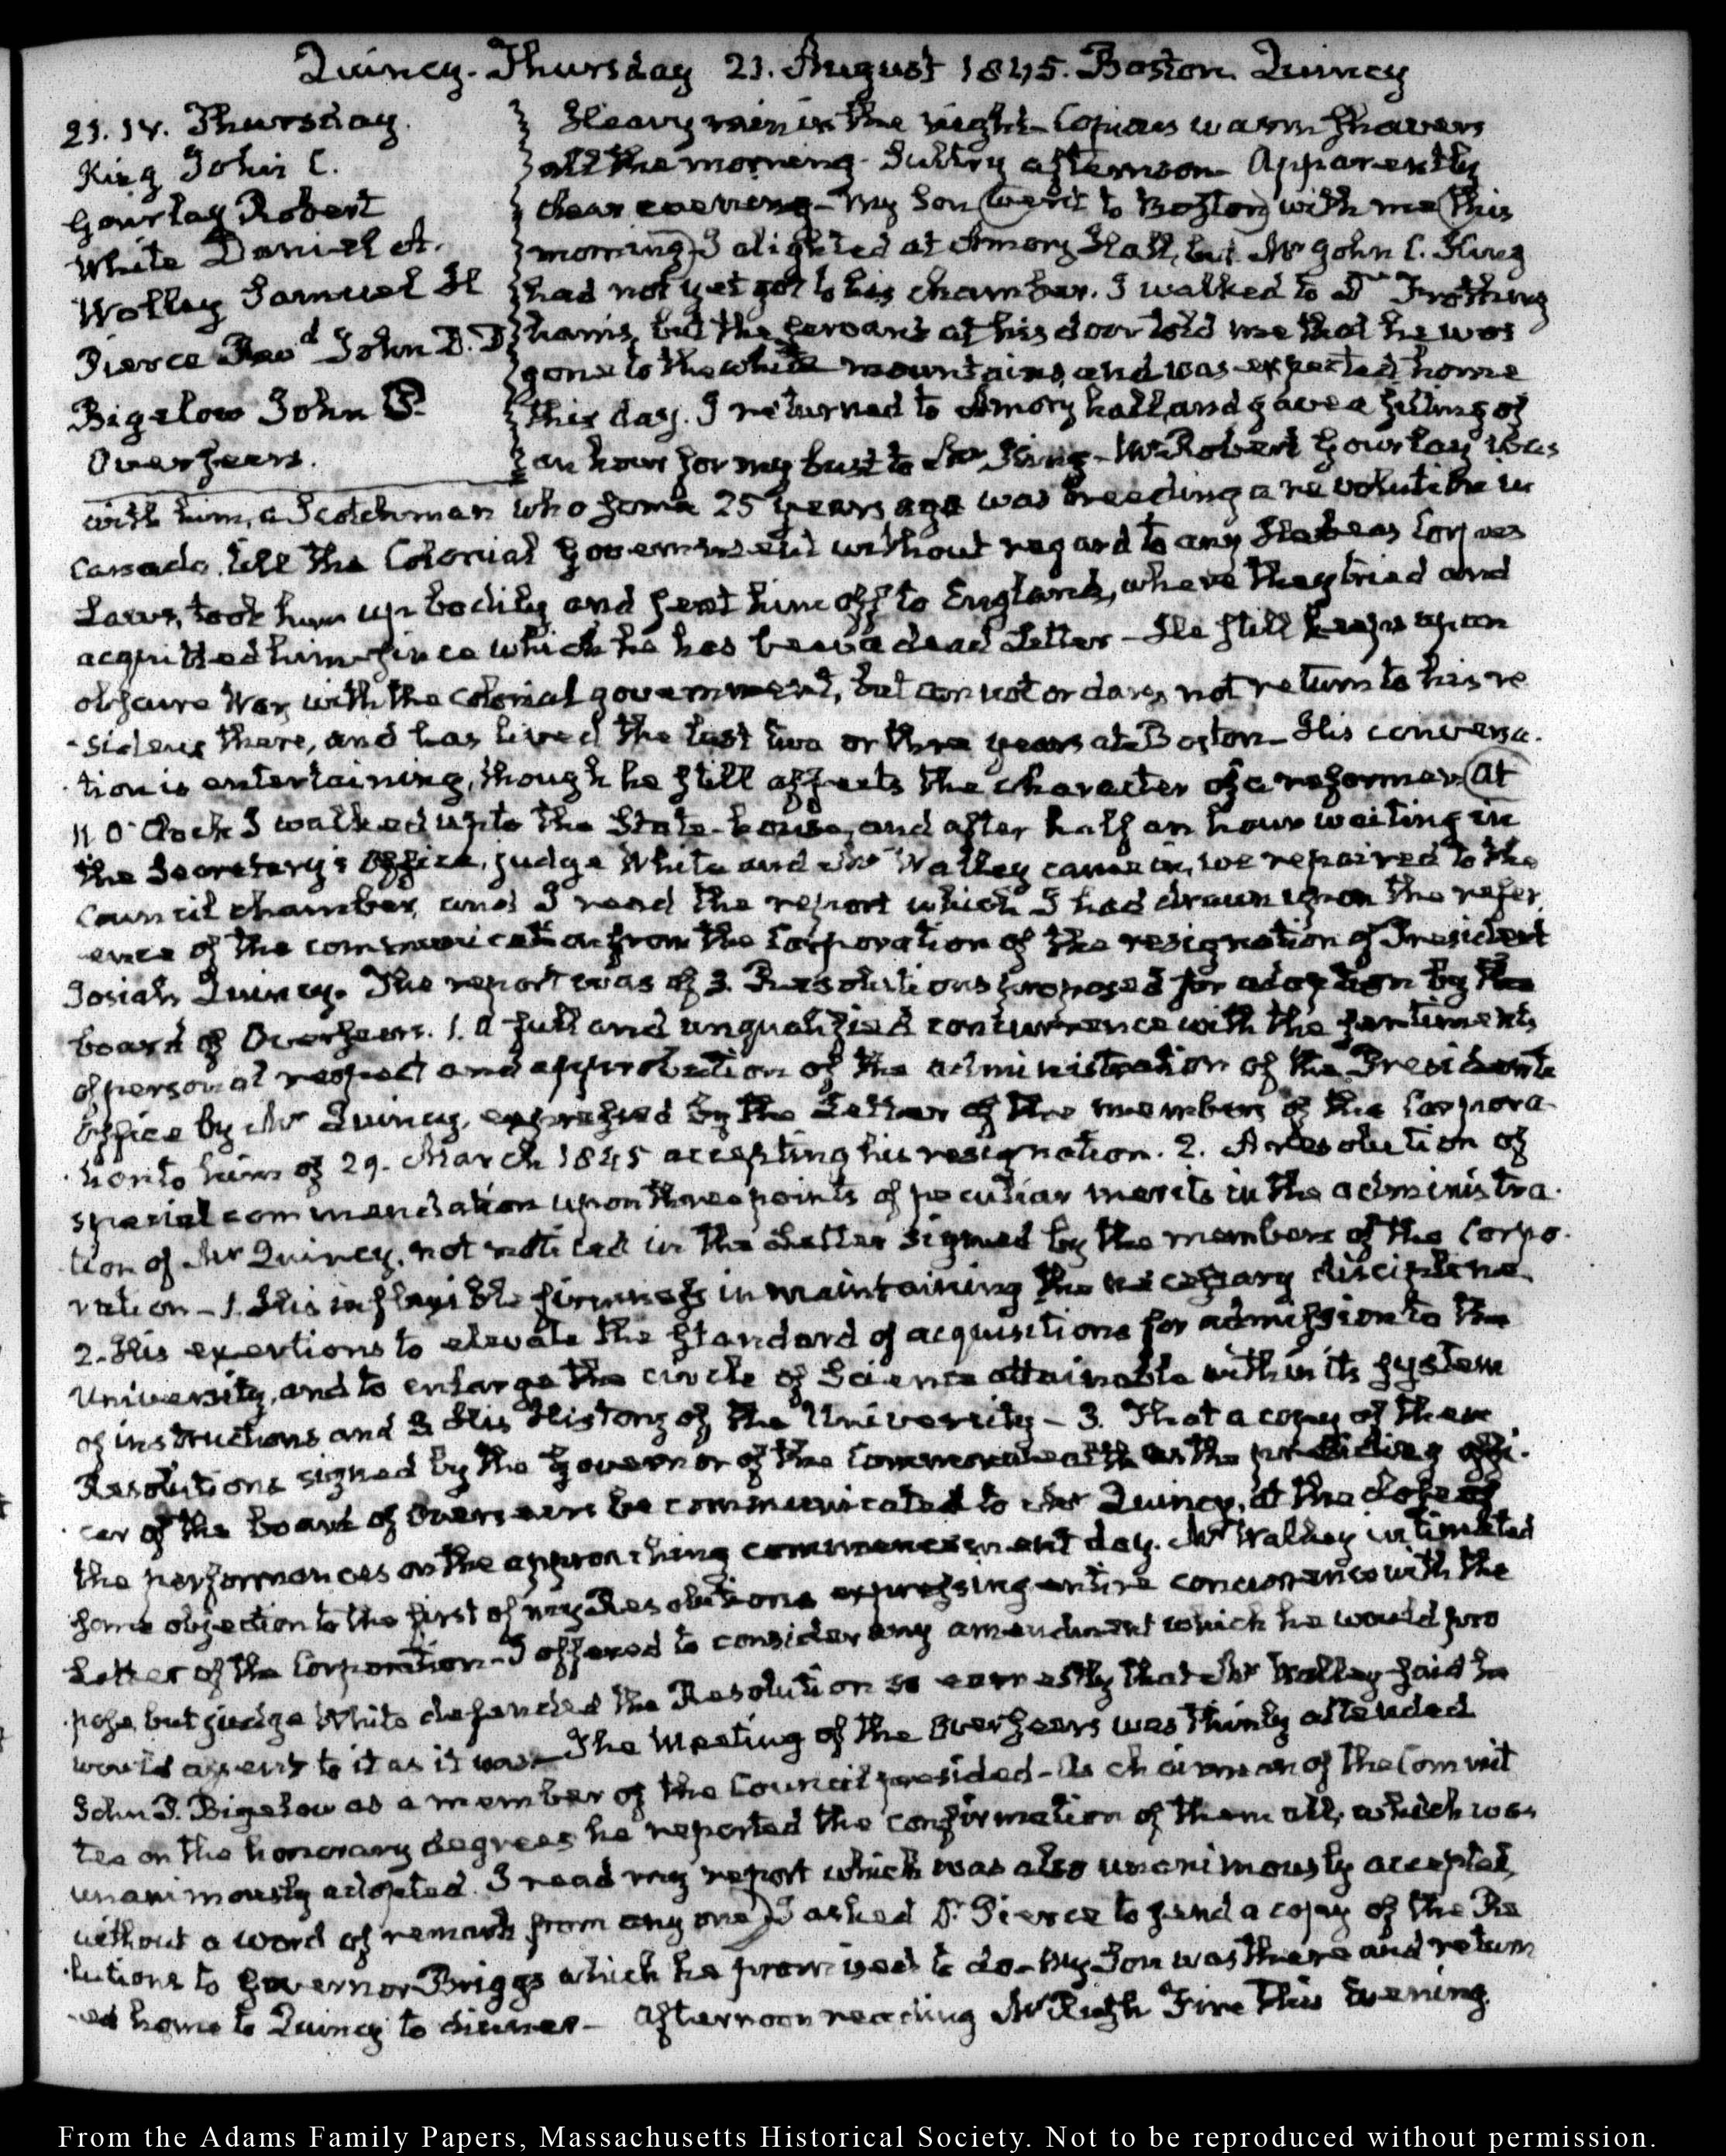 Quincy. Thursday 21. August 1845. Boston. Quincy
21. IV. Thursday.
King John C.
Gourlay Robert
White Daniel A.
Wolley Samuel H
Pierce Revd John D.D
Bigelow John P.
Overseers.
Heavy rain in the night. Copious warm showers
all the morning. Sultry afternoon. Apparently
clear evening. My Son went to Boston with me this
morning. I alighted at Amory Hall, but Mr John C. King
had not yet got to his chamber. I walked to Dr Frothing
hams, but the servant at his door told me that he was
gone to the white mountains, and was expected home
this day. I returned to Amory hall, and gave a sitting of
an hour for my bust to Mr King. Mr Robert Gourlay was
with him, a Scotchman who some 25 years ago was breeding a revolution in
Canada, till the Colonial Government without regard to any Habeas Corpus
Laws, took him up bodily and sent him off to England, where they tried and
acquitted him since which he has been a dead Letter – He still keeps up an
obscure War with the colonial government, but cannot or dares not return to his re
-sidence there, and has lived the last two or three years at Boston – His conversa.
-tion is entertaining, though he still affects the character of a reformer. At
11 O'Clock I walked up to the State-house, and after half an hour waiting in
the Secretary's Office, judge White and Mr Walley came in, we repaired to the
Council chamber, and I read the report which I had drawn upon the refer
ence of the communication from the Corporation of the resignation of President
Josiah Quincy. The report was of 3. Resolutions proposed for adoption by the
board of Overseers. 1. A full and unqualified concurrence with the sentiments
of personal respect and approbation of the administration of the Presidents
Office by Mr Quincy, expressed by the Letter of the members of the Corpora-
-tion to him of 29. March 1845 accepting his resignation. 2. A resolution of
special commendation upon three points of peculiar merits in the administra.
tion of Mr Quincy, not noticed in the Letter signed by the members of the Corpo.
ration – 1. His inflexible firmness in maintaining the necessary discipline
2. His exertions to elevate the standard of acquisitions for admission to the
University, and to enlarge the circle of Science attainable within its system
of instructions and 3 His History of the University – 3. That a copy of these
Resolutions signed by the Governor of the Commonwealth as the presiding offi.
-cer of the board of overseers be communicated to Mr Quincy, at the close of
the performances on the approaching commencement day. Mr Walley intimated
some objection to the first of my Resolutions expressing entire concurrence with the
Letter of the Corporation – I offered to consider any amendment which he would pro
-pose, but judge White defended the Resolution so earnestly that Mr Walley said he
would assent to it as it was – The Meeting of the Overseers was thinly attended
John P. Bigelow as a member of the Council presided – As chairman of the Commit
tee on the honorary degrees he reported the confirmation of them all, which was
unanimously adopted. I read my report which was also unanimously accepted,
without a word of remark from any one. I asked Dr Pierce to send a copy of the Re
-lutions to Governor Briggs which he promised to do – My Son was there and return
-ed home to Quincy to dinner – Afternoon reading Mr Fire This Evening.